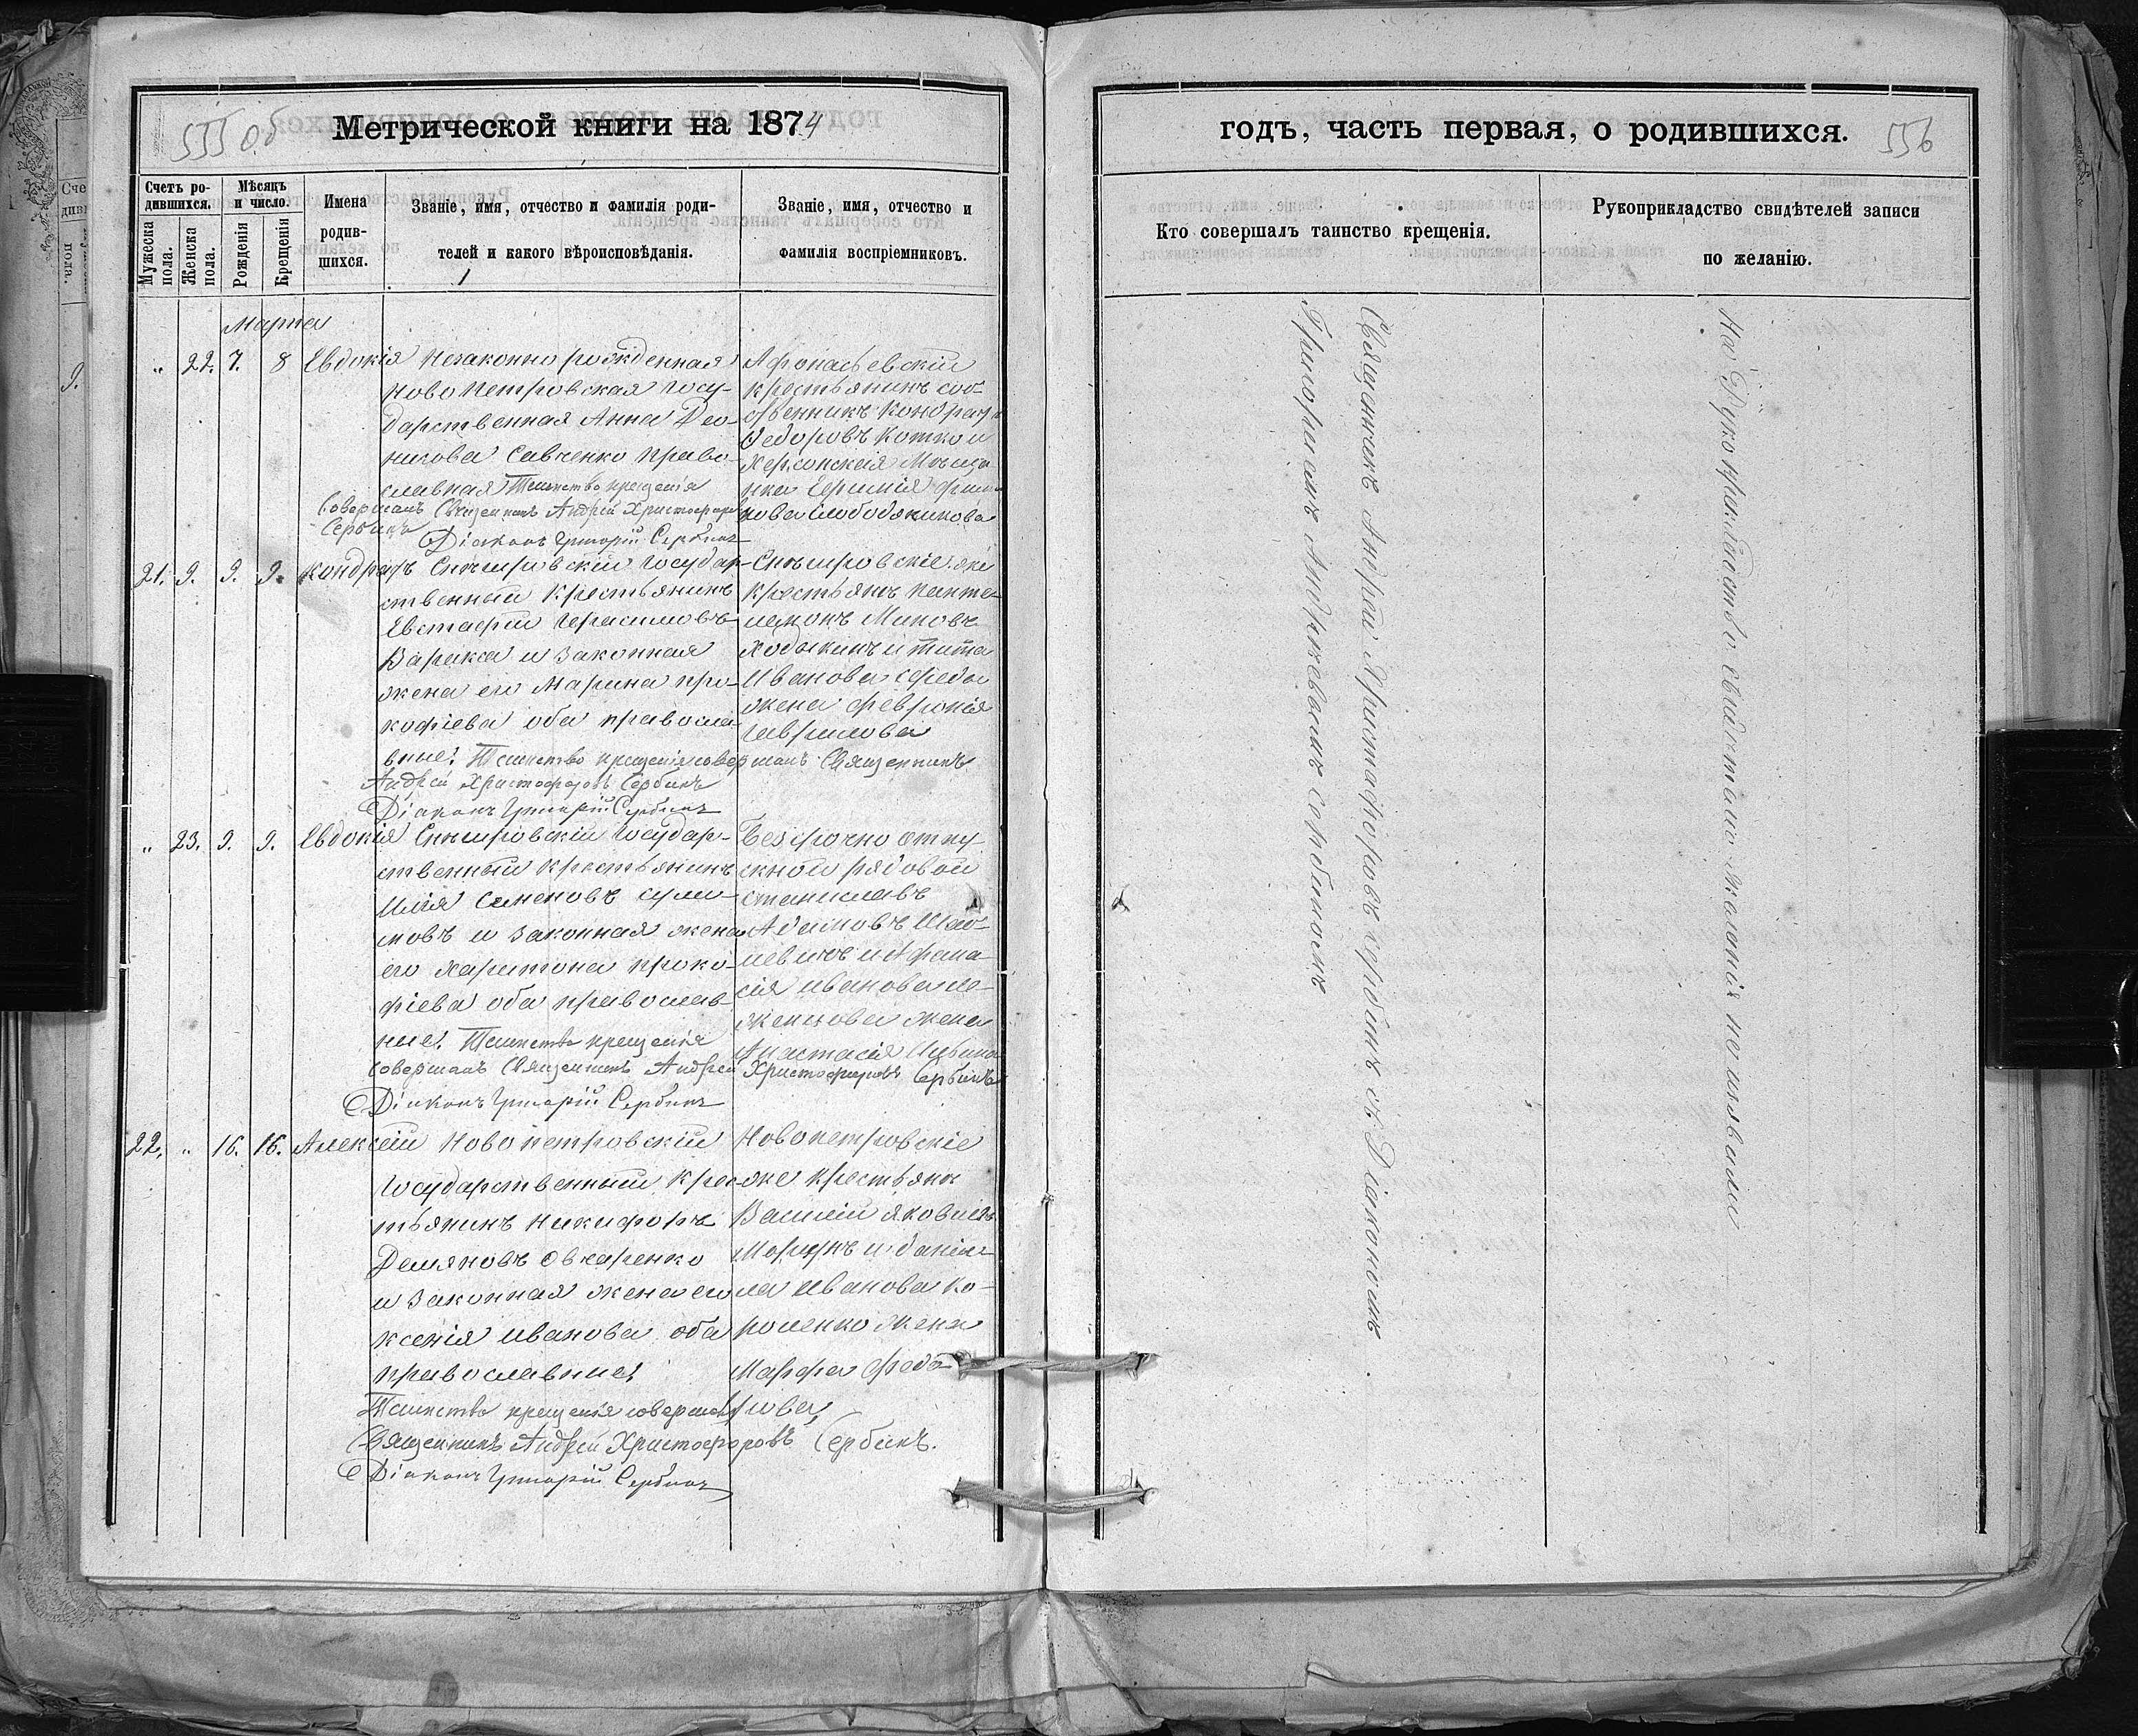 555 об
Метрической книги на 1874
Счетъ ро-
дившихся.
Мужеска пола.
Женска пола.
Мѣсяцъ
и число.
Рожденія
Крещенія
Имена
родив-
шихся.
Званіе, имя, отчество и фамилія роди-
телей и какого вѣроисповѣданія.
Званіе, имя, отчество и
фамилія воспріемниковъ.
Марта
„ 22. 7. 8 Евдокія
Незаконно рожденная
Новопетровская госу-
дарственная Анна Део-
нисова Савченко право-
славная Таинство крещенія
Совершалъ Священникъ Андрей Христофоровъ
Сербинъ
Діаконъ Григорій Сербинъ
крестьянинъ соб-
ственникъ Кондратъ
Федоровъ Котко и
Херсонская Мѣща-
нка
Слободяникова
21. 9. 9. Кондратъ
Снѣгировскій государ-
ственный крестьянинъ
Евстафій Герасимовъ
Варака и законная
жена его Марина про-
кофіева оба правосла-
вные. Таинство крещенія совершалъ Священникъ
Андрей Христофоровъ Сербинъ
Діаконъ Григорій Сербинъ
Снѣгировскіе же
крестьяне Панте-
леймонъ Миновъ
Ходыкинъ и Тита
Иванова Середы
жена Февронія
Гаврилова
„ 23. 9. 9. Евдокія
Снѣгировскій государ-
ственный крестьянинъ
Илія Семеновъ Сули-
мовъ и законная жена
его Харитона Проко-
фіева оба православ-
ные. Таинство крещенія
совершалъ Священникъ Андрей Христофоровъ Сербинъ
Діаконъ Григорій Сербинъ
Безсрочно отпу-
скной рядовой
Станиславъ
Адамовъ
и Афана-
сія Иванова Ле-
женкова жена
Анастасія
22. „ 16. 16. Алексій
Новопетровскій
государственный крес-
тьянинъ Никифоръ
Демяновъ Овчаренко
и законная жена его
Ксенія Иванова оба
православные.
Таинство крещенія совершалъ
Священникъ Андрей Христофоровъ Сербинъ.
Діаконъ Григорій Сербинъ
Новопетровскіе
же крестьяне
Василій Яковлевъ
и Даніи-
ла Иванова Ко-
роленко жена
Марфа Федо-
рова,
годъ, часть первая, о родившихся.
556
Кто совершалъ таинство крещенія.
Рукоприкладство свидѣтелей записи
по желанію.
Священникъ Андрей Христофоровъ Сербинъ съ Діакономъ
Григоріемъ Андреевымъ Сербинымъ
На Рукоприкладство свидѣтели желанія не изъявили